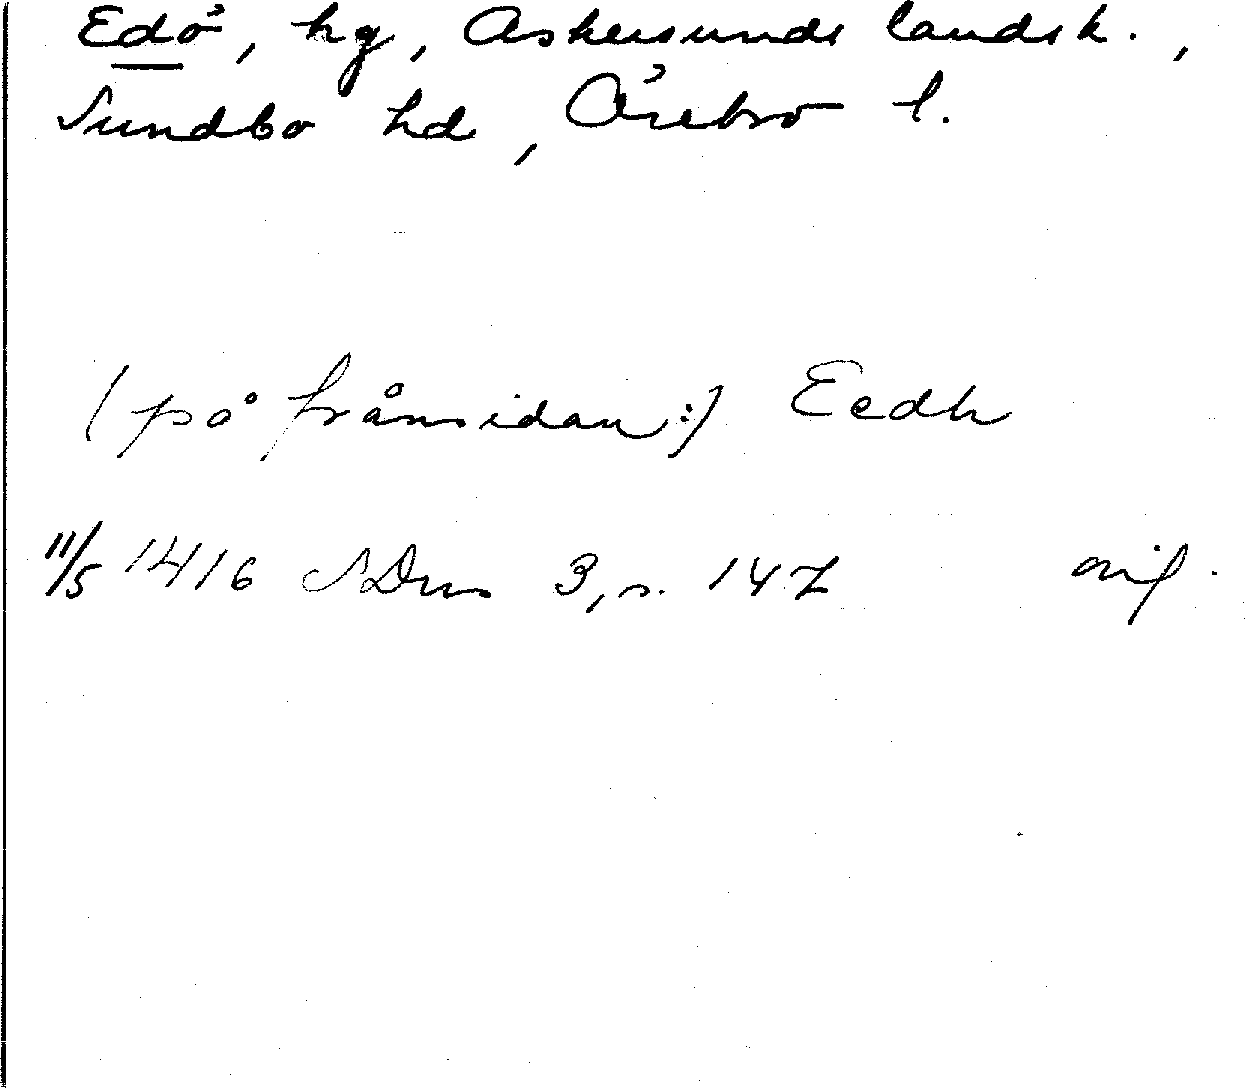 Edö, hg, Askersunds landsk.,
Sundbo hd, Örebro l.
(på frånsidan:) Eedh
11/5 1416 SDns 3, s. 147 avj.